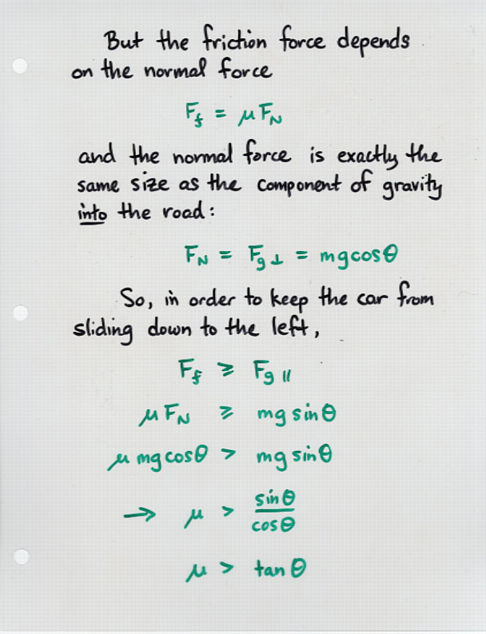 But the friction force depends
on the normal force
F_f = μ F_N
and the normal force is exactly the
same size as the component of gravity
into the road:
F_N = F_g⊥ = mg cosθ
So, in order to keep the car from
sliding down to the left,
F_f ≥ F_g∥
μ F_N ≥ mg sinθ
μ mg cosθ > mg sinθ
→ μ > sinθ / cosθ
μ > tanθ